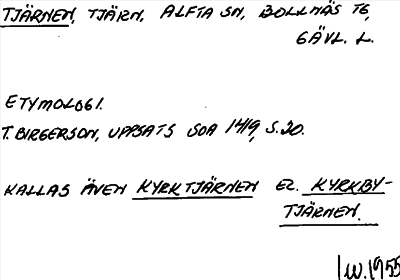 TJÄRNEN, TJÄRN, ALFTA SN, BOLLNÄS TG,
GÄVL. L.
ETYMOLOGI.
T. BIRGERSON, UPPSATS SOA 1419, S. 30.
KALLAS ÄVEN KYRKTJÄRNEN EL. KYRKBY-
TJÄRNEN.
I.W. 1955